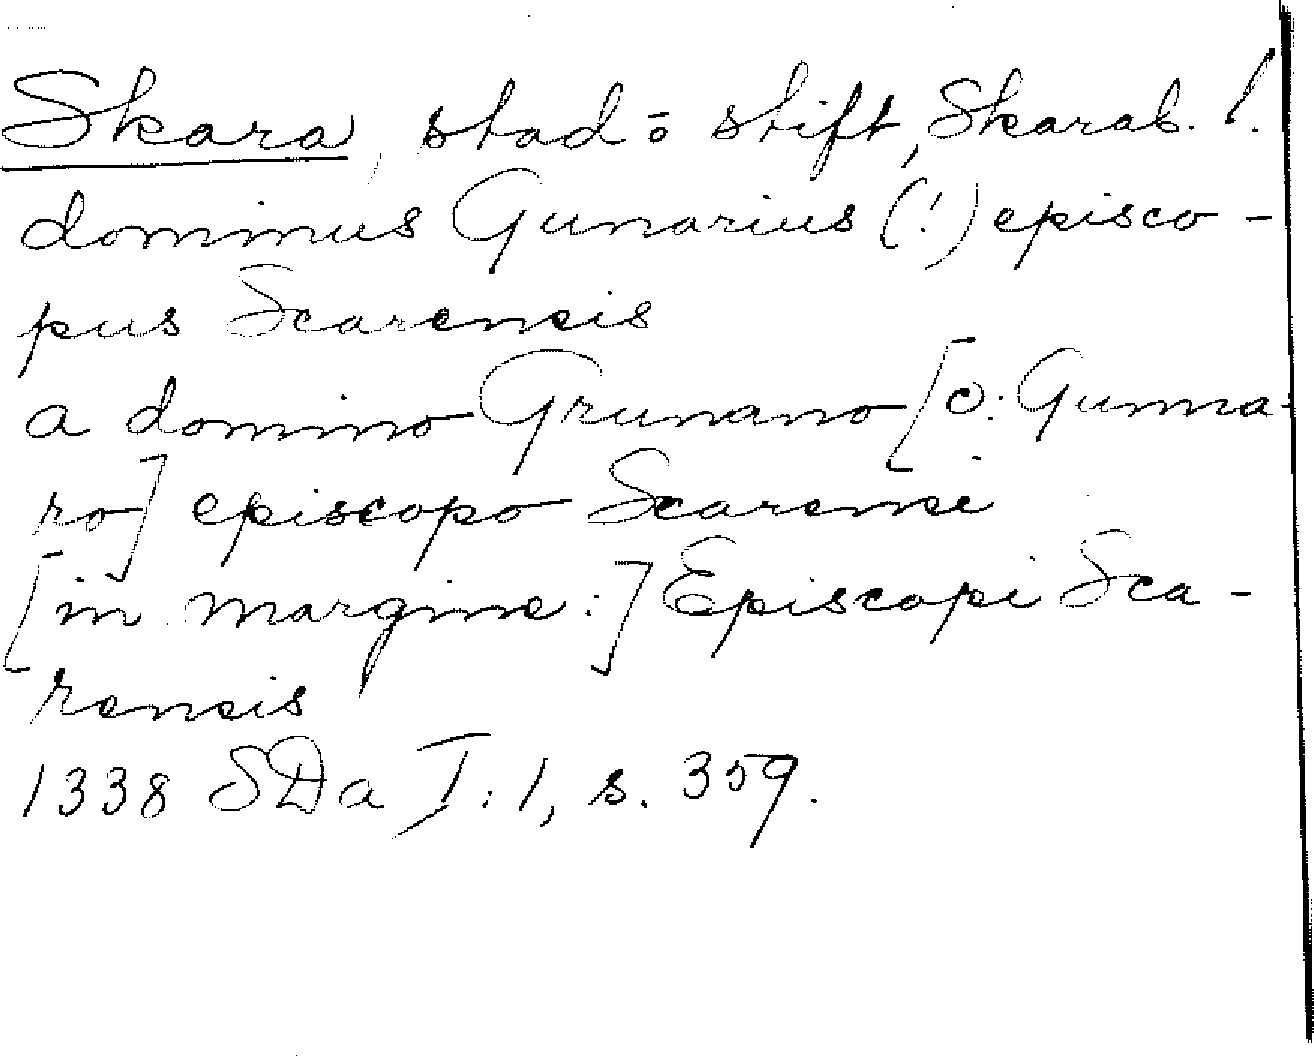 Skara, stad o stift, Skarab. l.
dominus Gunarius (!) episco-
pus Scarensis
a domino Grunano [ɔ: Gunna-
ro] episcopo Scarensi
[in margine:] Episcopi Sca-
rensis
1338 SDa I:1, s. 359.